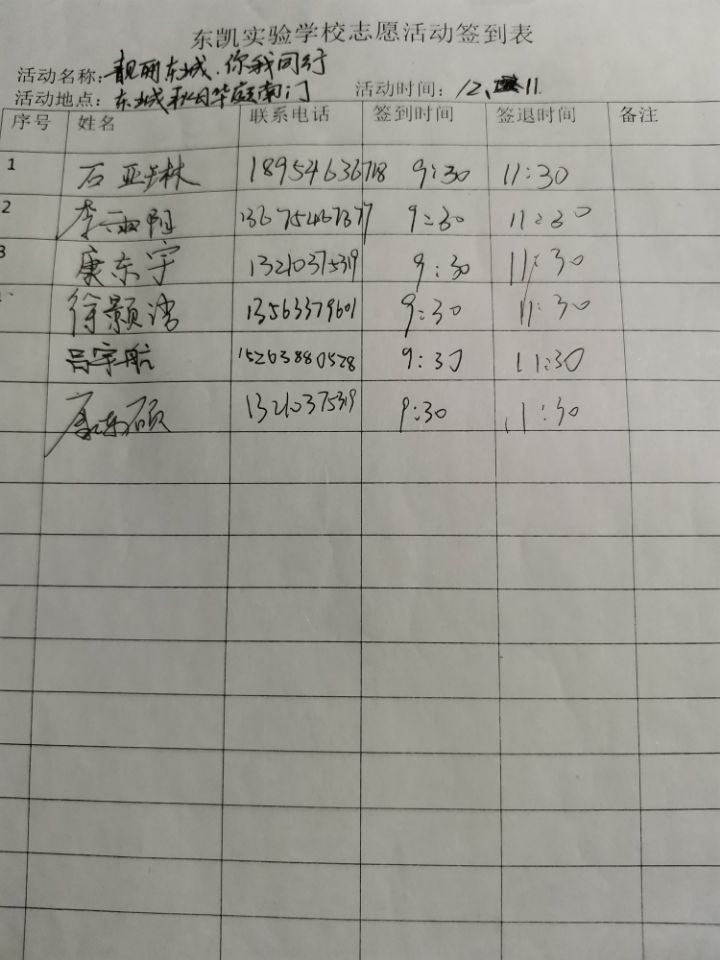 东凯实验学校志愿活动签到表
活动名称:靓丽东城.你我同行
活动地点:东城秋月华庭南门 活动时间:12、11.
序号 姓名 联系电话 签到时间 签退时间 备注
1 石亚琳 18954636718 9:30 11:30
2 李雨阳 13675467377 9:30 11:30
3 康东宇 13210375319 9:30 11:30
徐颢涛 13563379601 9:30 11:30
吕宇航 15263880528 9:30 11:30
康东硕 13210375319 9:30 11:30